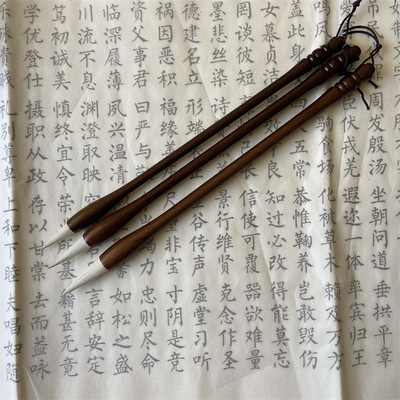 吊民 周发殷汤坐朝问道垂拱平章
臣伏戎羌遐迩一体率宾归王
驹食场化被草木赖及万方
盖此身 五常恭惟鞠养岂敢毁伤
女慕贞洁 知过必改得能莫忘
罔谈彼短 长信使可覆器欲难量
墨悲丝染诗 景行维贤克念作圣
德建名立形端 谷传声虚堂习听
祸因恶积福缘善 璧非宝寸阴是竞
资父事君曰严与敬 力忠则尽命
临深履薄夙兴温凊 如松之盛
川流不息渊澄取映 言辞安定
笃初诚美慎终宜令荣 所基籍甚无竟
学优登仕摄职从政存以甘棠去而益咏
殊贵贱礼别尊卑上和下睦夫唱妇随